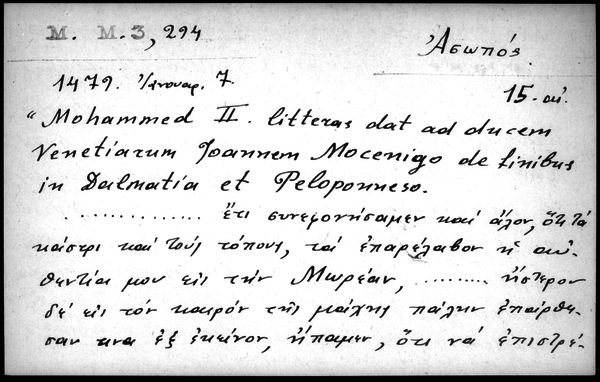 M. M. 3, 294
Ἀσωπός.
1479. Ἰανουαρ. 7.
15. αἰ.
"Mohammed II. litteras dat ad ducem
Venetiarum Joannem Mocenigo de finibus
in Dalmatia et Peloponneso.
.............. ἔτι συνεφονήσαμεν καί ἄλον, ὅτι τά
κάστρι καί τούς τόπους, τά ἐπαρέλαβον ἡ αὐ-
θεντία μου εἰς τήν Μωρέαν, ......... ἤστερον
δέ εἰς τόν καιρόν τῆς μάχης πάλην ἐπάρθη-
σαν κνα ἐξ ἐκείνον, ἤπαμεν, ὅτι νά ἐπιστρέ-